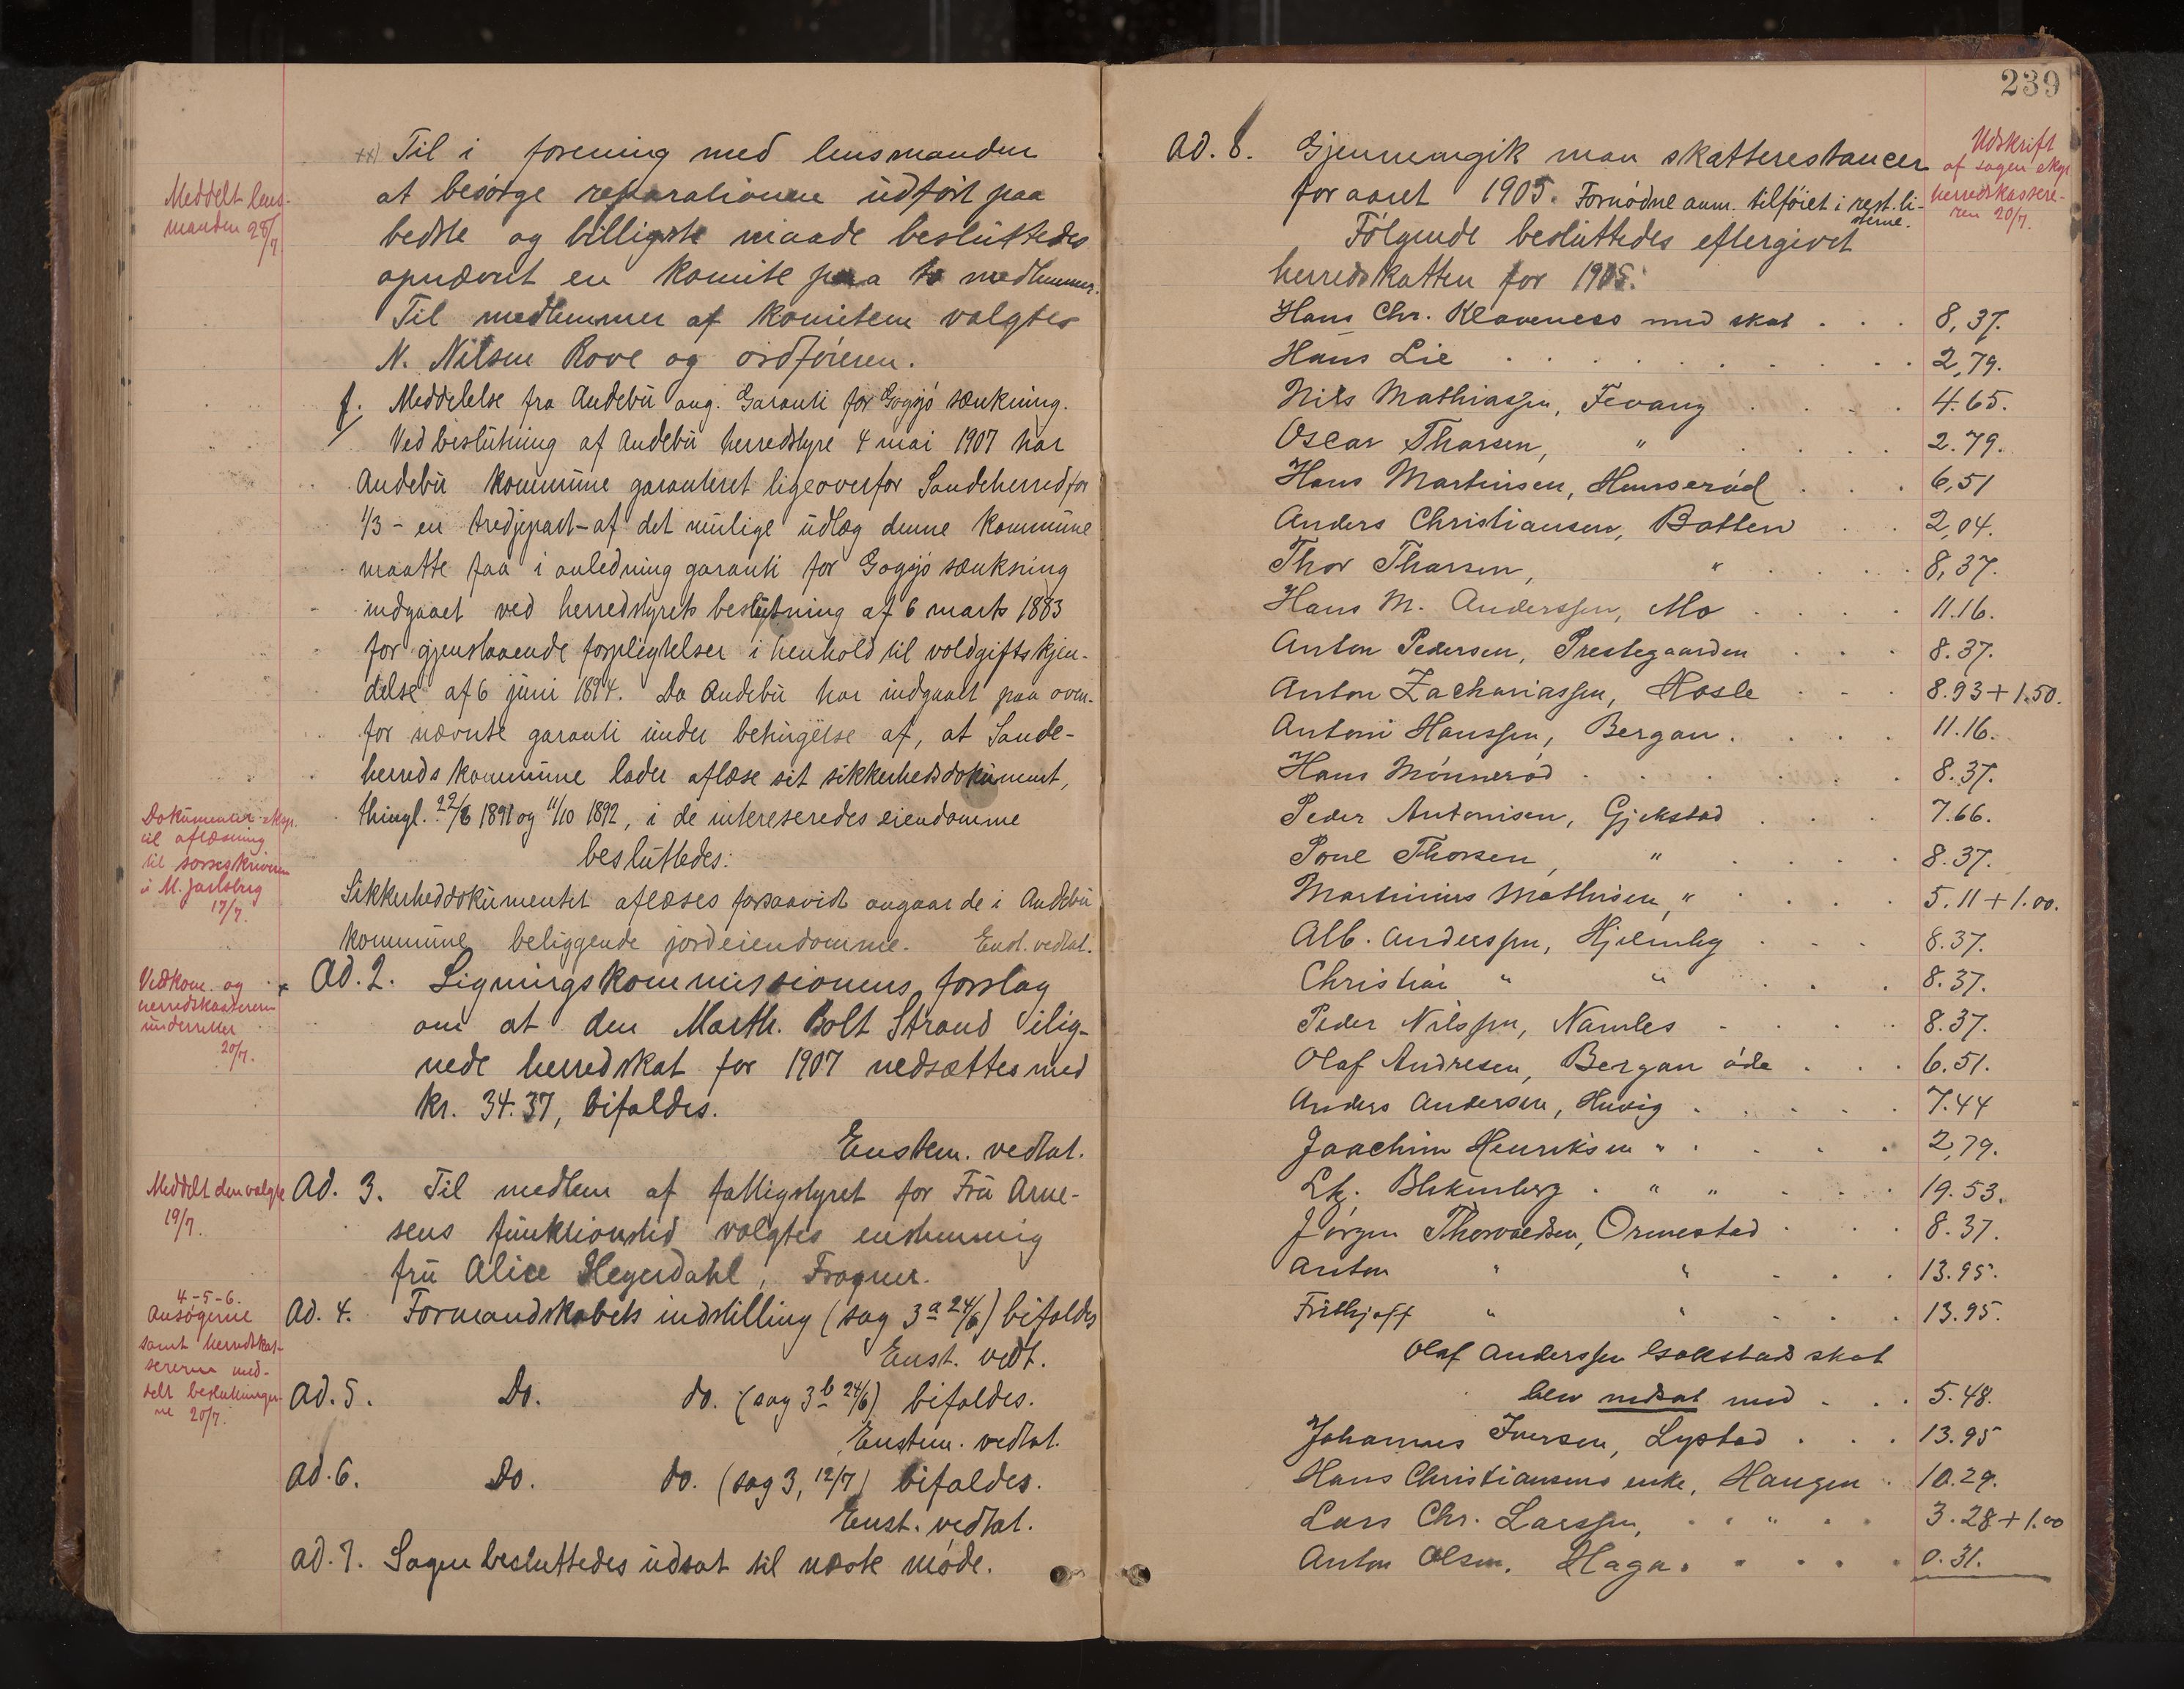 xx) Til i forening med lensmanden
at besørge reparationene udført paa
bedste og billigste maade besluttedes
opnævnt en komite paa to medlemmer.
Til medlemmer af komiteen valgtes
N. Nilsen Rove og ordføreren.
Meddelt lens-
manden 29/7.
f. Meddelelse fra Andebu ang. Garanti for Gogsjø sænkning.
Ved beslutning af Andebu herredstyre 4 mai 1907 har
Andebu kommune garanteret ligeoverfor Sandeherred for
1/3 - en tredjepart - af det mulige udlæg denne kommune
maatte faa i anledning garanti for Gogsjø sænkning
indgaaet ved herredstyrets beslutning af 6 marts 1883
for gjenstaaende forpligtelser i henhold til voldgiftskjen-
delse af 6 juni 1894. Da Andebu har indgaaet paa oven-
for nævnte garanti under betingelse af, at Sande-
herreds kommune lader aflæse sit sikkerhedsdokument,
thingl. 22/6 1891 og 11/10 1892, i de intereseredes eiendomme
besluttedes:
Sikkerheddokumentet aflæses forsaavidt angaar de i Andebu
kommune beliggende jordeiendomme. Enst. vedtat.
Dokumenter eksp.
til aflæsning
til sorenskriveren
i M. Jarlsberg
17/7.
Ad. 2. Ligningskommissionens forslag
om at den Marth. Bolt Strand ilig-
nede herredskat for 1907 nedsættes med
kr. 34.37, bifaldes.
Enstem. vedtat.
Vedkom. og
herredskasseren
underrettet
20/7.
Ad. 3. Til medlem af fattigstyret for Fru Arne-
sens funktionstid valgtes enstemmig
fru Alice Heyerdahl, Fragner.
Meddelt den valgte
19/7.
Ad. 4. Formandskabets indstilling (sag 3 a 24/6) bifaldes
Enst. vedt.
Ad. 5. Do. do. (sag 3 b 24/6) bifaldes.
Enstem. vedtat.
Ad. 6. Do. do. (sag 3, 12/7) bifaldes.
Enst. vedtat.
Ad. 7. Sagen besluttedes udsat til næste møde.
4-5-6.
Ansøgerne
samt herredskas-
sereren med-
delt beslutninger-
ne 20/7.
239
Ad. 8. Gjennemgik man skatterestancer
for aaret 1905. Fornødne anm. tilføiet i rest.li-
sterne.
Følgende besluttedes eftergivet
herredskatten for 1905:
Udskrift
af sagen eksp.
herredskassere-
ren 20/7.
Hans Chr. Klaveness med skat . . . 8,37.
Hans Lie . . . 2,79.
Nils Mathiassen, Fevang . . . 4.65.
Oscar Thorsen, " . . . 2.79.
Hans Martinsen, Hunserød . . . 6,51
Anders Christiansen, Botten . . 2,04.
Thor Thorsen, " . . . 8,37.
Hans M. Anderssen, Mo . . . 11.16.
Anton Pedersen, Prestegaarden . . . 8.37.
Anton Zachariassen, Hasle . . . 8.93 + 1.50.
Antoni Hanssen, Bergan . . . 11.16.
Hans Mønnerød . . . 8.37.
Peder Antonisen, Gjekstad . . . 7.66.
Poul Thorsen, " . . . 8.37.
Martinius Mathisen, " . . . 5.11 + 1.00.
Alb. Anderssen, Hjelmby . . . 8.37.
Christian " " . . . 8.37.
Peder Nilssen, Namles . . . 8.37.
Olaf Andresen, Bergan øde . . . 6.51.
Anders Andersen, Huvig . . . 7.44
Joachim Henriksen " . . . 2,79.
Blekenberg . " " . . . 19.53.
Jørgen Thorvaldsen, Ormestad . . . 8.37.
Anton " " . . . 13.95.
Frithjoff " " . . . 13.95.
Olaf Anderssen Gokstads skat
blev nedsat med . . . 5.48.
Johannes Iversen, Lystad . . . 13.95
Hans Christiansens enke, Haugen . 10.29.
Lars Chr. Larssen, " . . 3.28 + 1.00
Anton Olsen, Haga . . . 0.31.